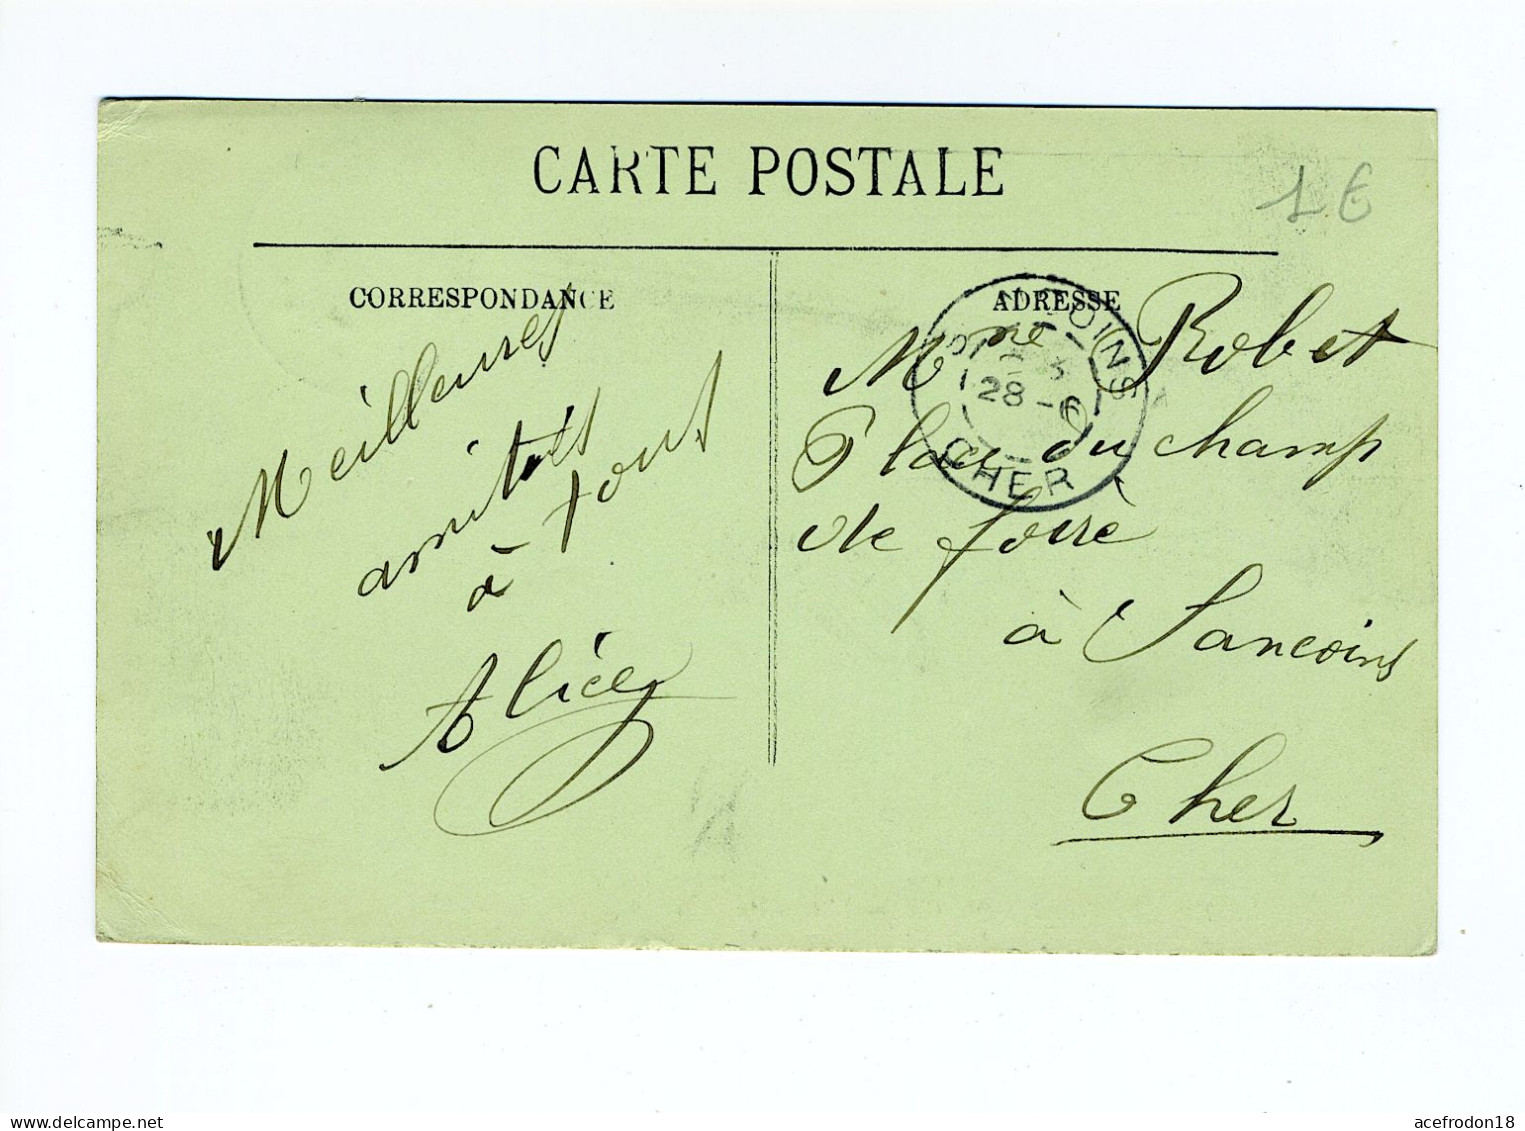 CARTE POSTALE
1 €
CORRESPONDANCE
Meilleures
amitiés
à tous
Alice
ADRESSE
Mme Robet
Place du champ
de foire
à Sancoins
Cher
SANCOINS
28 - 6
CHER
acefrodon18